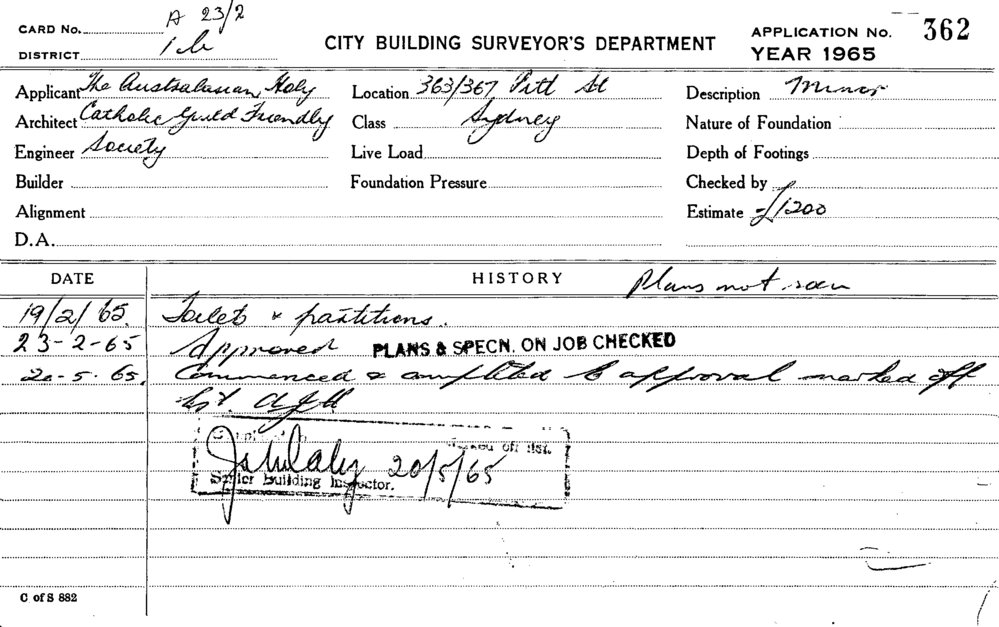 CARD No. A 23/2
DISTRICT
CITY BUILDING SURVEYOR'S DEPARTMENT
APPLICATION No. 362
YEAR 1965
Applicant The Australasian Holy
Architect Catholic Guild Friendly
Engineer Society
Builder
Alignment
D.A.
Location 363/367 Pitt St
Class Sydney
Live Load
Foundation Pressure
Description Minor
Nature of Foundation
Depth of Footings
Checked by
Estimate £1200
DATE HISTORY Plans not seen
19/2/65. Toilet & partitions.
23-2-65 Approved PLANS & SPECN. ON JOB CHECKED
20-5-65. Commenced & completed to approval marked off
list.
off list.
20/5/65
Senior Building Inspector.
C of S 882